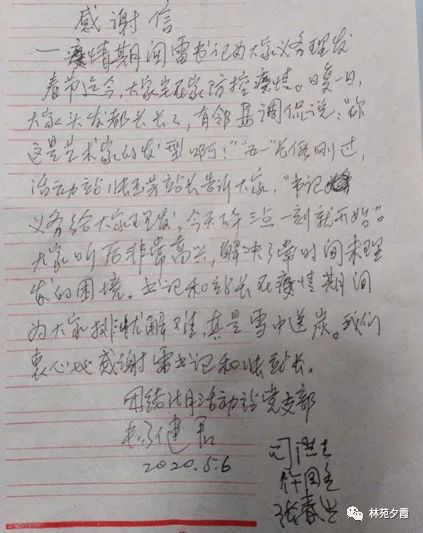 感谢信
一疫情期间雷书记为大家义务理发
春节迄今，大家宅在家防控疫情。日复一日，
大家头发都长长了，有邻居调侃说：“你
这是艺术家的发型啊！”“五一”长假刚过，
活动站张玉芳站长告诉大家，“书记
义务给大家理发，今天下午三点一刻就开始”。
大家听后非常高兴，解决了长时间未理
发的困境。书记和站长在疫情期间
为大家排忧解难，真是雪中送炭。我们
衷心地感谢雷书记和张站长。
团结北活动站党支部
健君
2020.5.6
司
张春生
林苑夕霞